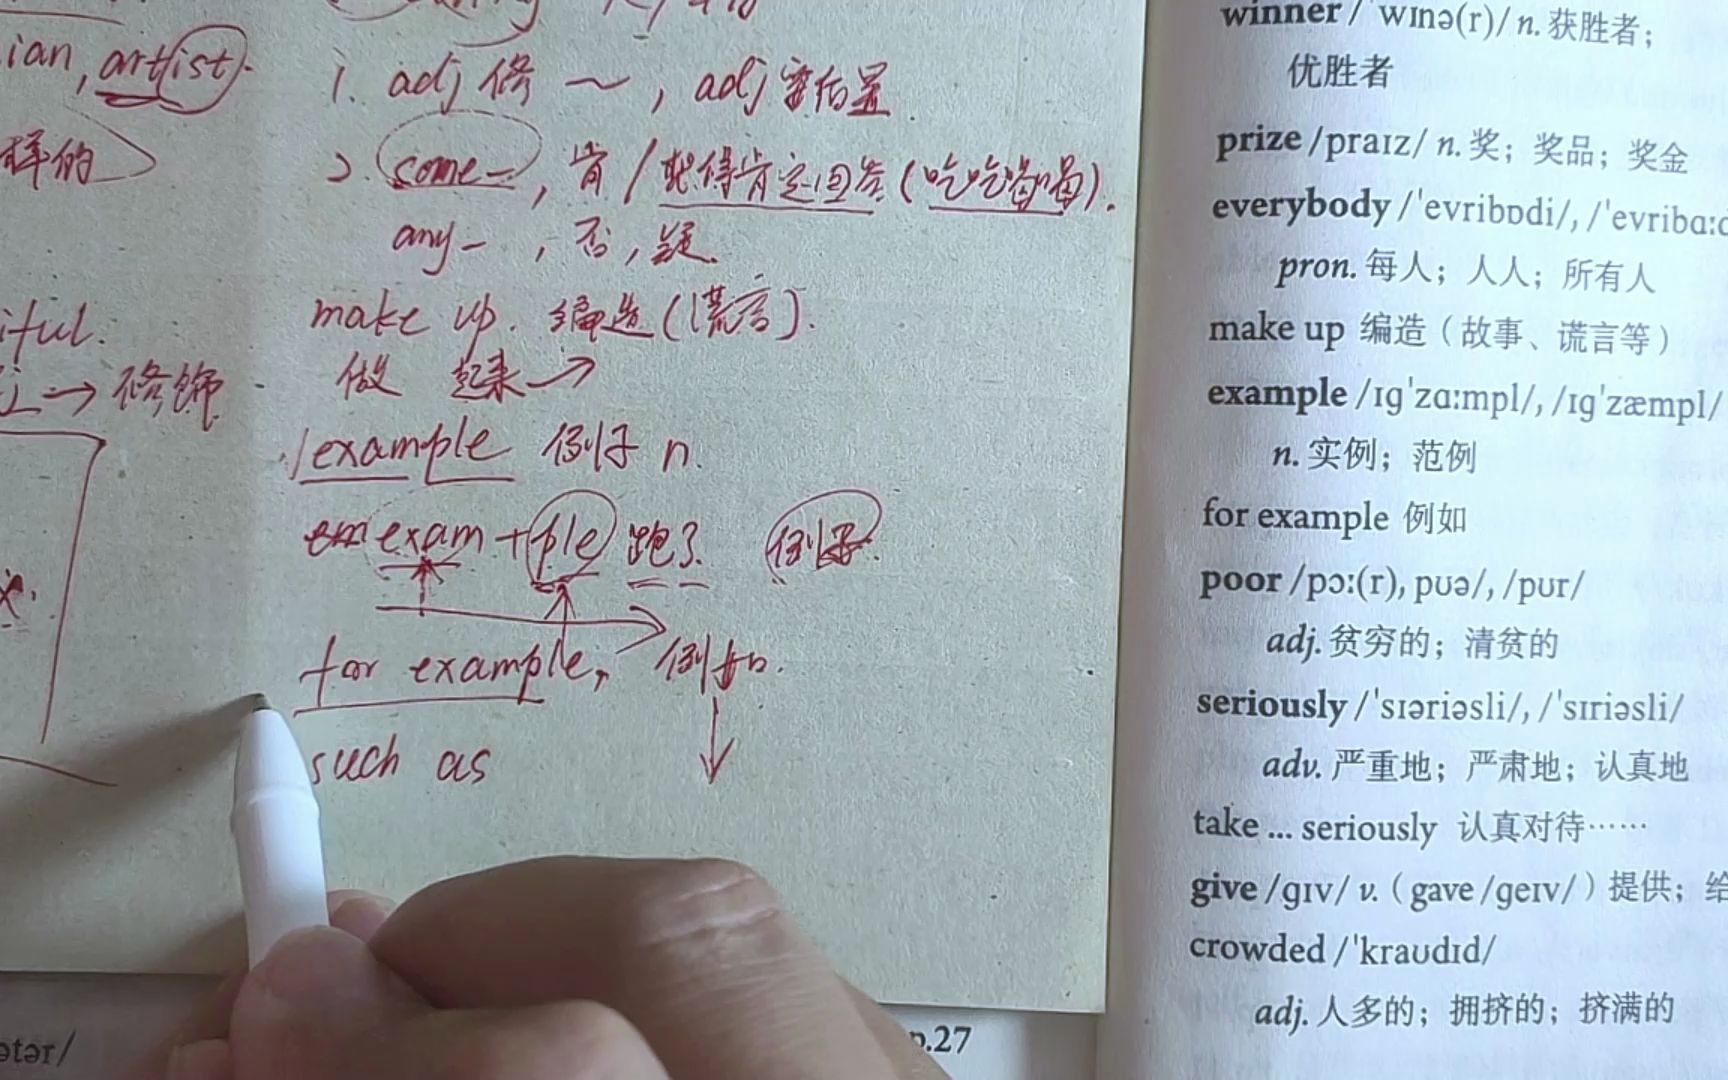 ian, artist).
样的
iful.
→ 修饰
1. adj 修 ~, adj 需后置
2. some-, 肯 / 想得肯定回答 (吃吃喝喝).
any-, 否, 疑.
make up. 编造 (谎言).
做 起来 →
example 例子 n.
exam + ple 跑了 例子
for example, 例如.
such as
winner /ˈwɪnə(r)/ n. 获胜者;
优胜者
prize /praɪz/ n. 奖；奖品；奖金
everybody /ˈevribɒdi/, /ˈevribɑ:d
pron. 每人；人人；所有人
make up 编造（故事、谎言等）
example /ɪɡˈzɑ:mpl/, /ɪɡˈzæmpl/
n. 实例；范例
for example 例如
poor /pɔ:(r), pʊə/, /pʊr/
adj. 贫穷的；清贫的
seriously /ˈsɪəriəsli/, /ˈsɪriəsli/
adv. 严重地；严肃地；认真地
take ... seriously 认真对待……
give /ɡɪv/ v.（gave /ɡeɪv/）提供；给
crowded /ˈkraʊdɪd/
adj. 人多的；拥挤的；挤满的
ətər/
p.27